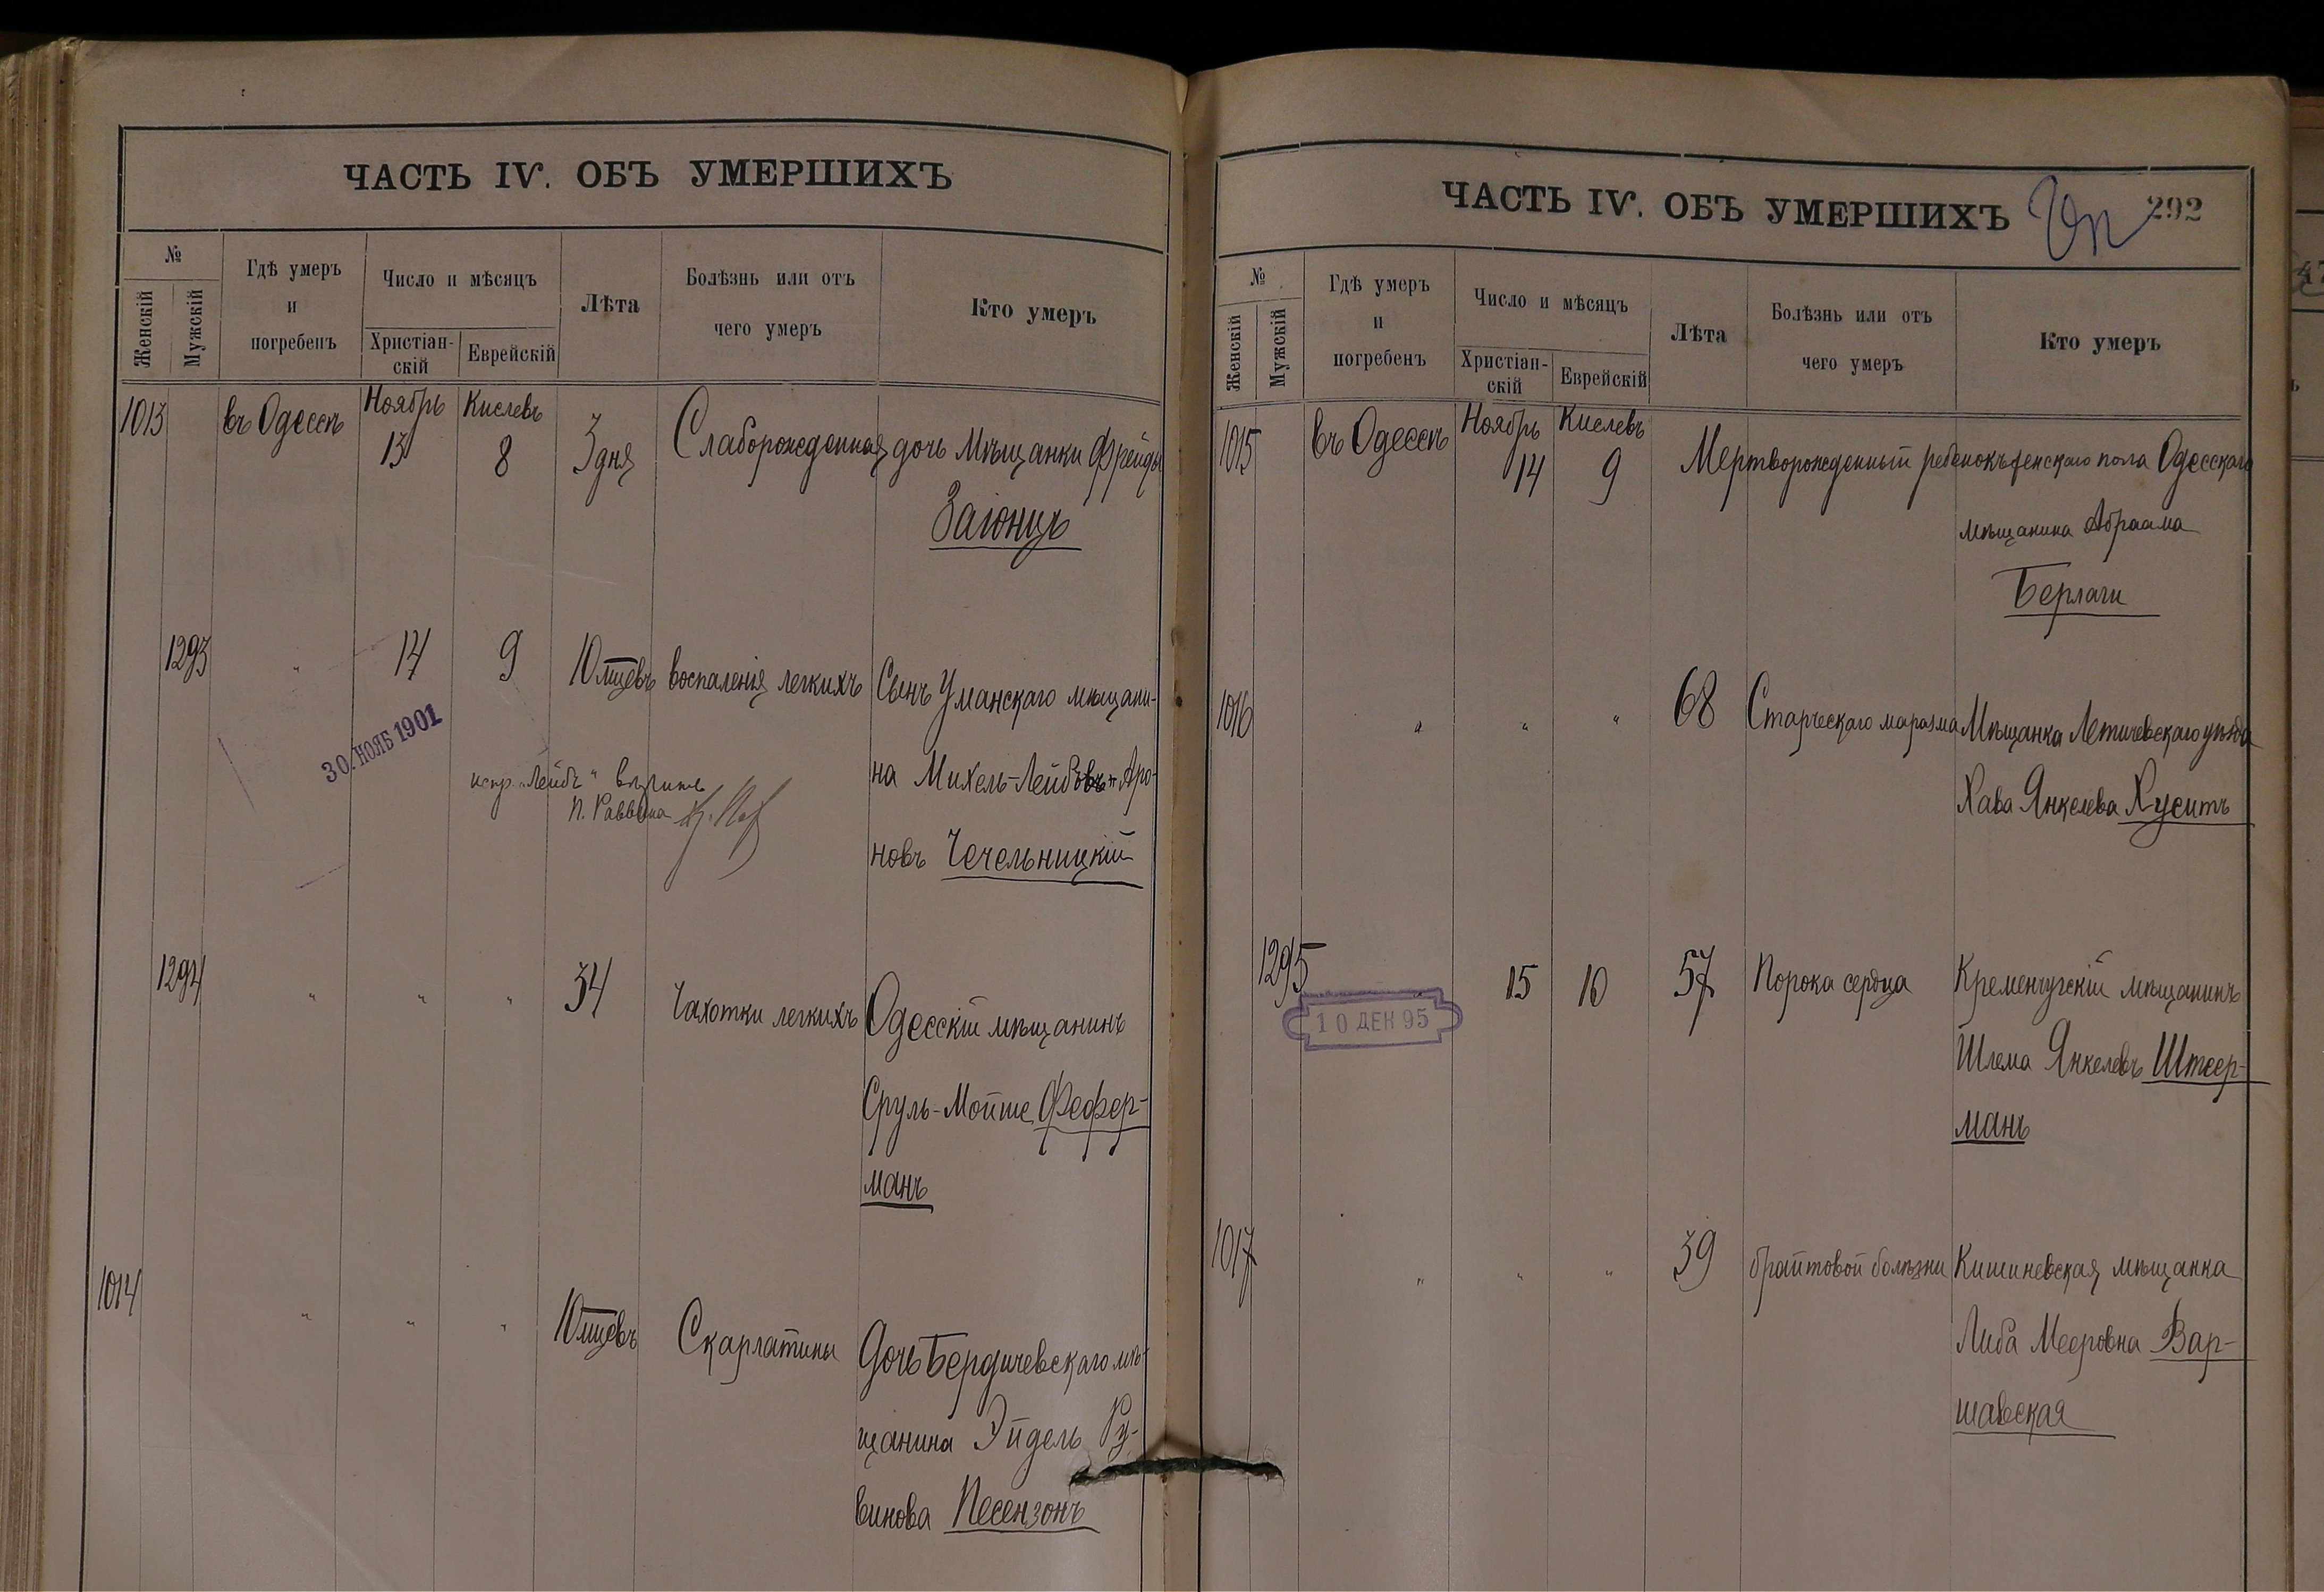 ЧАСТЬ IV. ОБЪ УМЕРШИХЪ
№
Женскій
Мужскій
Гдѣ умеръ
и
погребенъ
Число и мѣсяцъ
Христіан-
скій
Еврейскій
Лѣта
Болѣзнь или отъ
чего умеръ
Кто умеръ
1013 въ Одессѣ Ноябрь 13 Кислевъ 8 3 дня Слаборожденная дочь мѣщанки Фрейды
Загонцъ
1293 " 14 9 10 мцевъ воспаленія легкихъ Сынъ Уманскаго мѣщани-
на Михель-Лейбовъ Аро-
новъ Чечельницкій
30. НОЯБ 1901
испр. "Лейбъ" вѣрить
П. Раввина
1294 " " " 34 Чахотки легкихъ Одесскій мѣщанинъ
Сруль-Мойше Фефер-
манъ
1014 " " " 10 мцевъ Скарлатины Дочь Бердичевскаго мѣ-
щанина Эйдель Ру-
винова Песензонъ
ЧАСТЬ IV. ОБЪ УМЕРШИХЪ
292
№
Женскій
Мужскій
Гдѣ умеръ
и
погребенъ
Число и мѣсяцъ
Христіан-
скій
Еврейскій
Лѣта
Болѣзнь или отъ
чего умеръ
Кто умеръ
1015 въ Одессѣ Ноябрь 14 Кислевъ 9 Мертворожденный ребенокъ женскаго пола Одесскаго
мѣщанина Абраама
Берлаги
1016 " " " 68 Старческаго маразма Мѣщанка Летичевскаго уѣзда
Хава Янкелева Хуситъ
1295 " 15 10 57 Порока сердца Кременчугскій мѣщанинъ
Шлема Янкелевъ Штеер-
манъ
10 ДЕК 95
1017 " " " 39 брайтовой болѣзни Кишиневская мѣщанка
Либа Мееровна Вар-
шавская